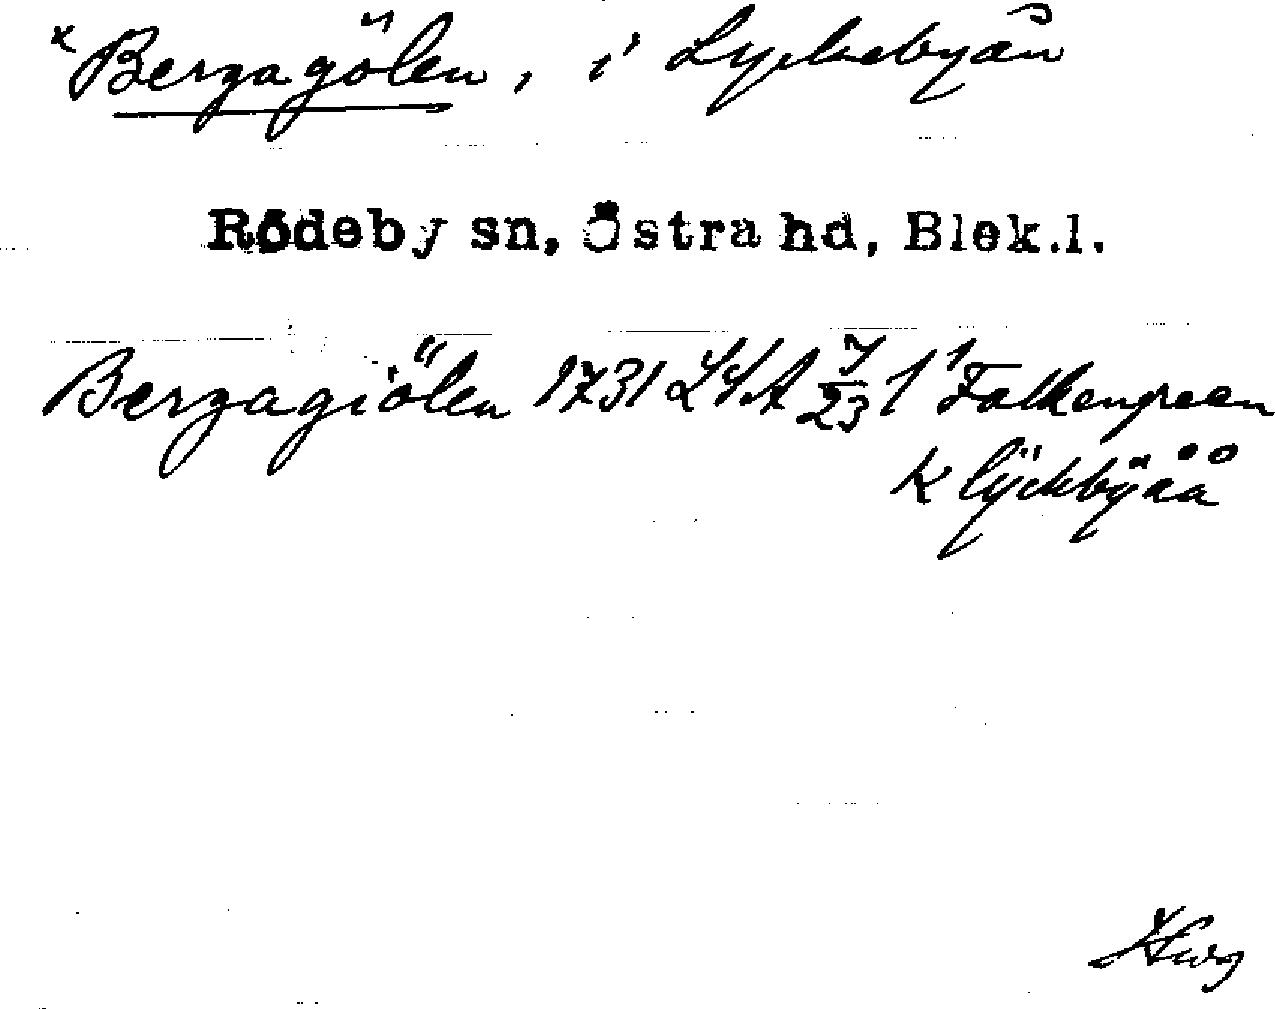 × Bergagölen, i Lyckebyån
Rödeby sn, Östra hd, Blek.l.
Bergagiölen 1731 LSA 7/23 1 1 Falkengreen
K lÿckbÿåå